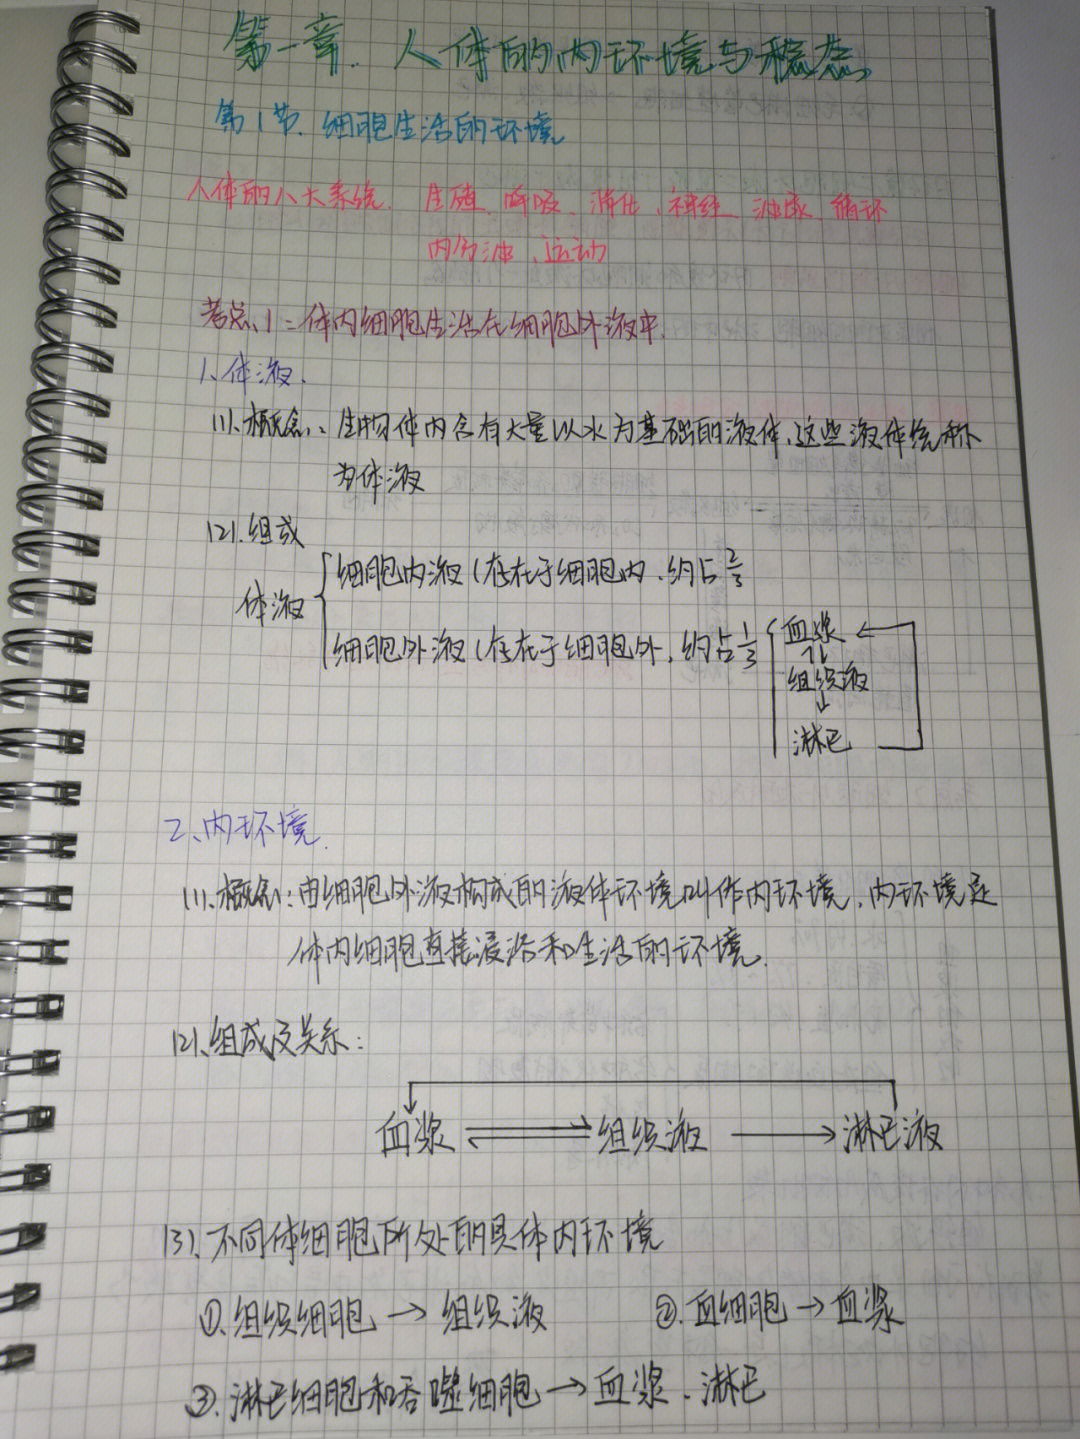 第一章. 人体的内环境与稳态
第1节. 细胞生活的环境
人体的八大系统. 生殖、呼吸、消化、神经、泌尿、循环
内分泌、运动
考点1:体内细胞生活在细胞外液中.
1、体液.
(1).概念:生物体内含有大量以水为基础的液体,这些液体统称
为体液
(2).组成
体液
细胞内液(存在于细胞内,约占2/3
细胞外液(存在于细胞外,约占1/3
血浆
组织液
淋巴
2、内环境.
(1).概念:由细胞外液构成的液体环境叫作内环境,内环境是
体内细胞直接浸浴和生活的环境.
(2).组成及关系:
血浆 ⇌ 组织液 → 淋巴液
(3).不同体细胞所处的具体内环境
①.组织细胞→组织液 ②.血细胞→血浆
③.淋巴细胞和吞噬细胞→血浆、淋巴